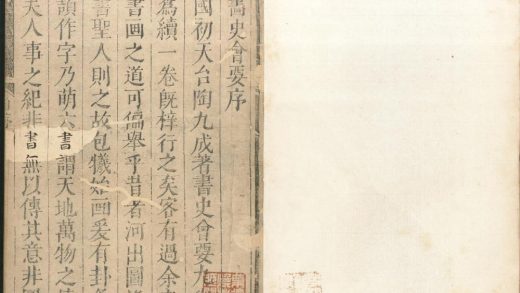 畫史會要序
國初天台陶九成著書史會要九
爲續一卷旣梓行之矣客有過余
書画之道可偏舉乎昔者河出圖
書聖人則之故包犧始画爰有卦
頡作字乃萌六書謂天地萬物之
天人事之紀非書無以傳其意非